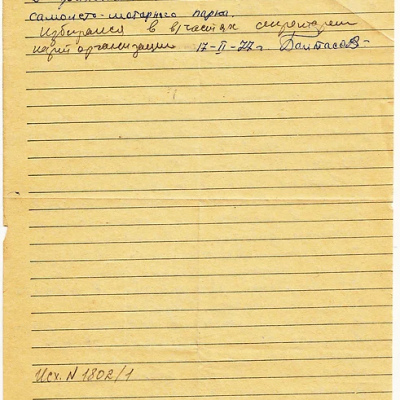 самолето-моторного парка.
Избирался в в/частях секретарем
парт организации 17-II-77г.
Исх. N 1802/1